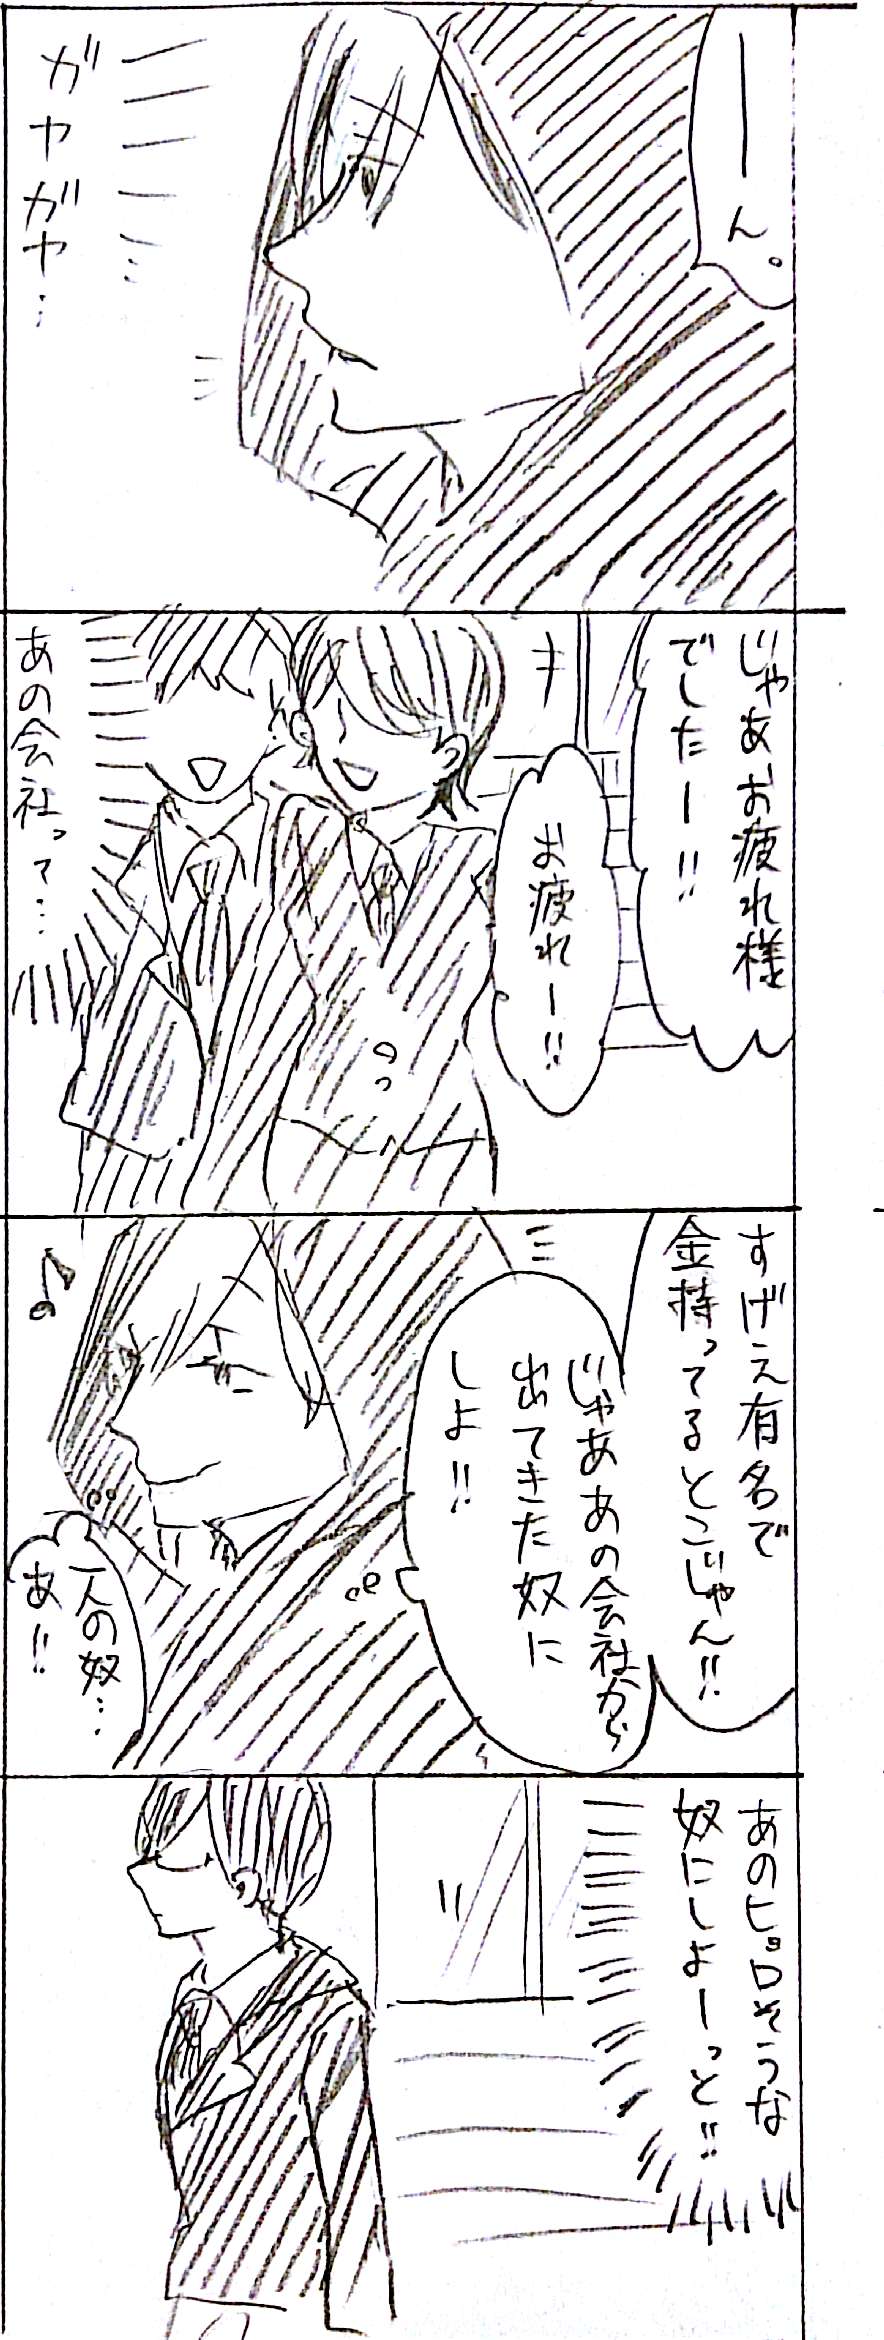 ーーん。
ガヤガヤ…
じゃあお疲れ様
でしたー!!
お疲れー!!
あの会社って…
すげえ有名で
金持ってるとこじゃん!!
じゃああの会社から
出てきた奴に
しよ!!
♪
一人の奴…
あ!!
あのヒョロそうな
奴にしよーっと!!